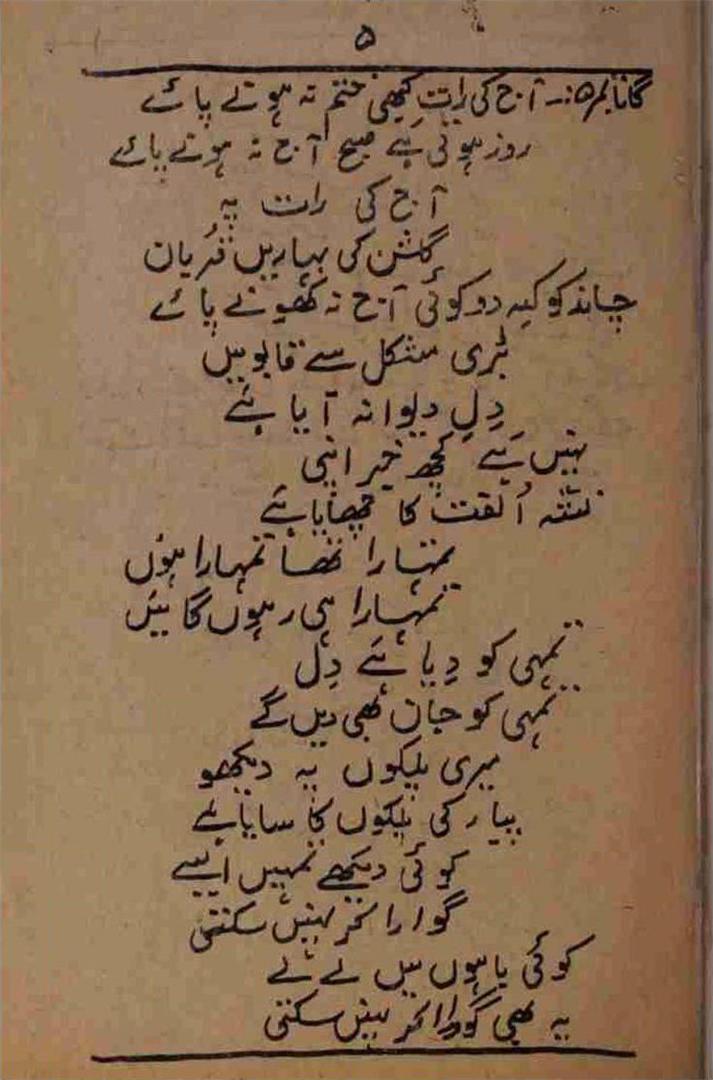 ۵
گانا نمبر ۵:۔ آج کی رات کبھی ختم نہ ہونے پائے
روز ہوتی ہے صبح آج نہ ہونے پائے
آج کی رات پہ
گلشن کی بہاریں قُربان
چاند کو کہہ دو کوئی آج نہ کھونے پائے
بڑی مشکل سے قابو میں
دِل دیوانہ آیا ہَے
نہیں ہَے کچھ خبر اپنی
نشہ اُلفت کا چھایا ہَے
تمہارا تھا تمہارا ہوُں
تمہارا ہی رہوں گا میَں
تمہی کو دِیا ہَے دِل
تمہی کو جان بھی دیں گے
میری پلکوں پہ دیکھو
پیار کی پلکوں کا سایا ہَے
کوئی دیکھے تمہیں ایسے
گوارا کر نہیں سکتی
کوئی باہوں میں لے لے
یہ بھی گوارا کر نہیں سکتی